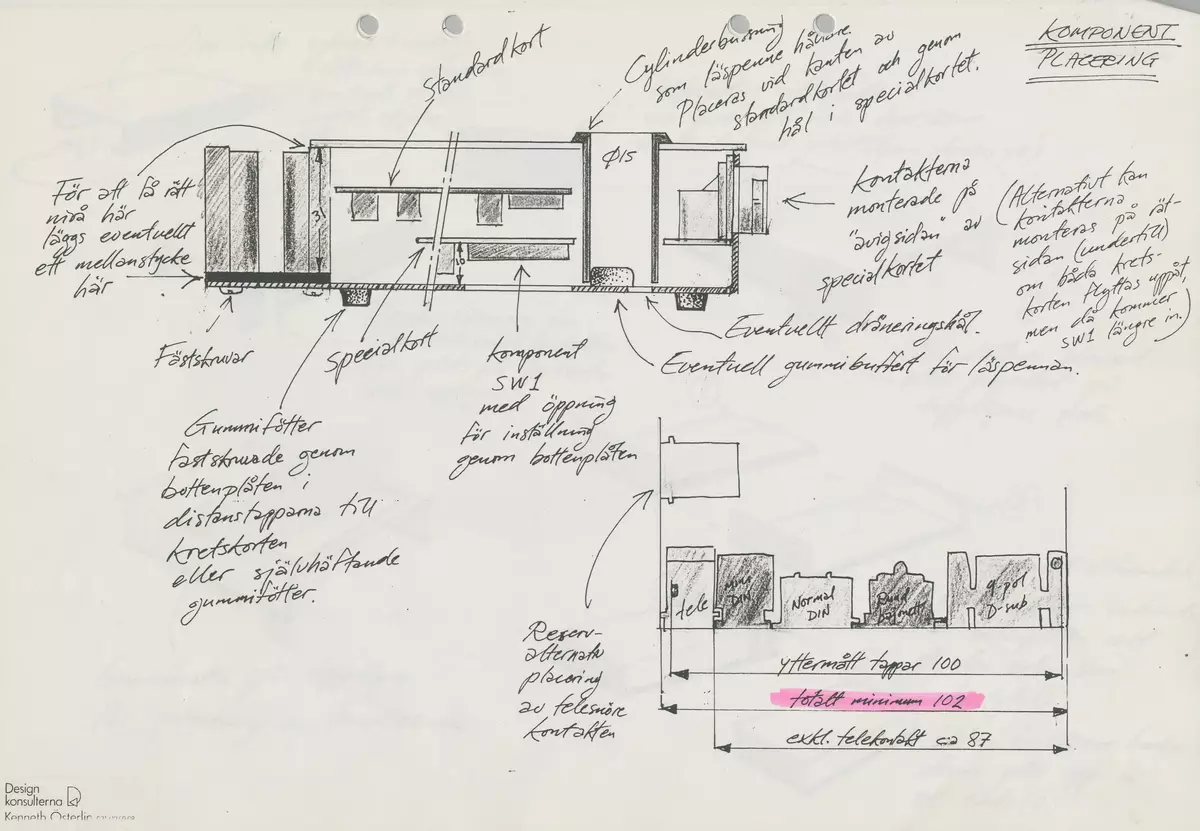 KOMPONENT
PLACERING
standardkort
Cylinderbussning
som läspenne hållare.
Placeras vid kanten av
standardkortet och genom
hål i specialkortet.
Ø15
31
För att få rätt
nivå här
läggs eventuellt
ett mellanstycke
här
kontakterna
monterade på
"avigsidan" av
specialkortet
(Alternativt kan
kontakterna
monteras på rät-
sidan (undertill)
om båda krets-
korten flyttas uppåt,
men då kommer
SW1 längre in.)
Fästskruvar
specialkort
komponent
SW1
med öppning
för inställning
genom bottenplåten
Eventuellt dräneringshål.
Eventuell gummibuffert för läspennan.
Gummifötter
fastskruvade genom
bottenplåten i
distanstapparna till
kretskorten
eller självhäftande
gummifötter.
Reserv-
alternativ
placering
av telesnöre
kontakten
tele
Mini
DIN
Normal
DIN
Rund
9 pol
D-sub
yttermått tappar 100
totalt minimum 102
exkl. telekontakt ca 87
Design
konsulterna
Kenneth Österlin